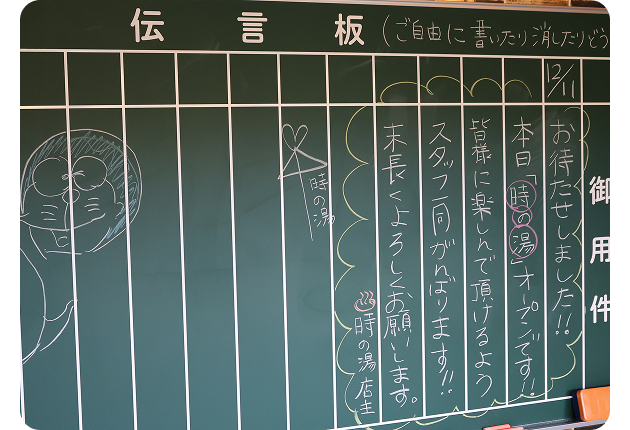 伝言板(ご自由に書いたり消したりどう
御用件
12/11
お待たせしました!!
本日「時の湯」オープンです!!
皆様に楽しんで頂けるよう
スタッフ一同がんばります!!
末長くよろしくお願いします。
時の湯 店主
時の湯